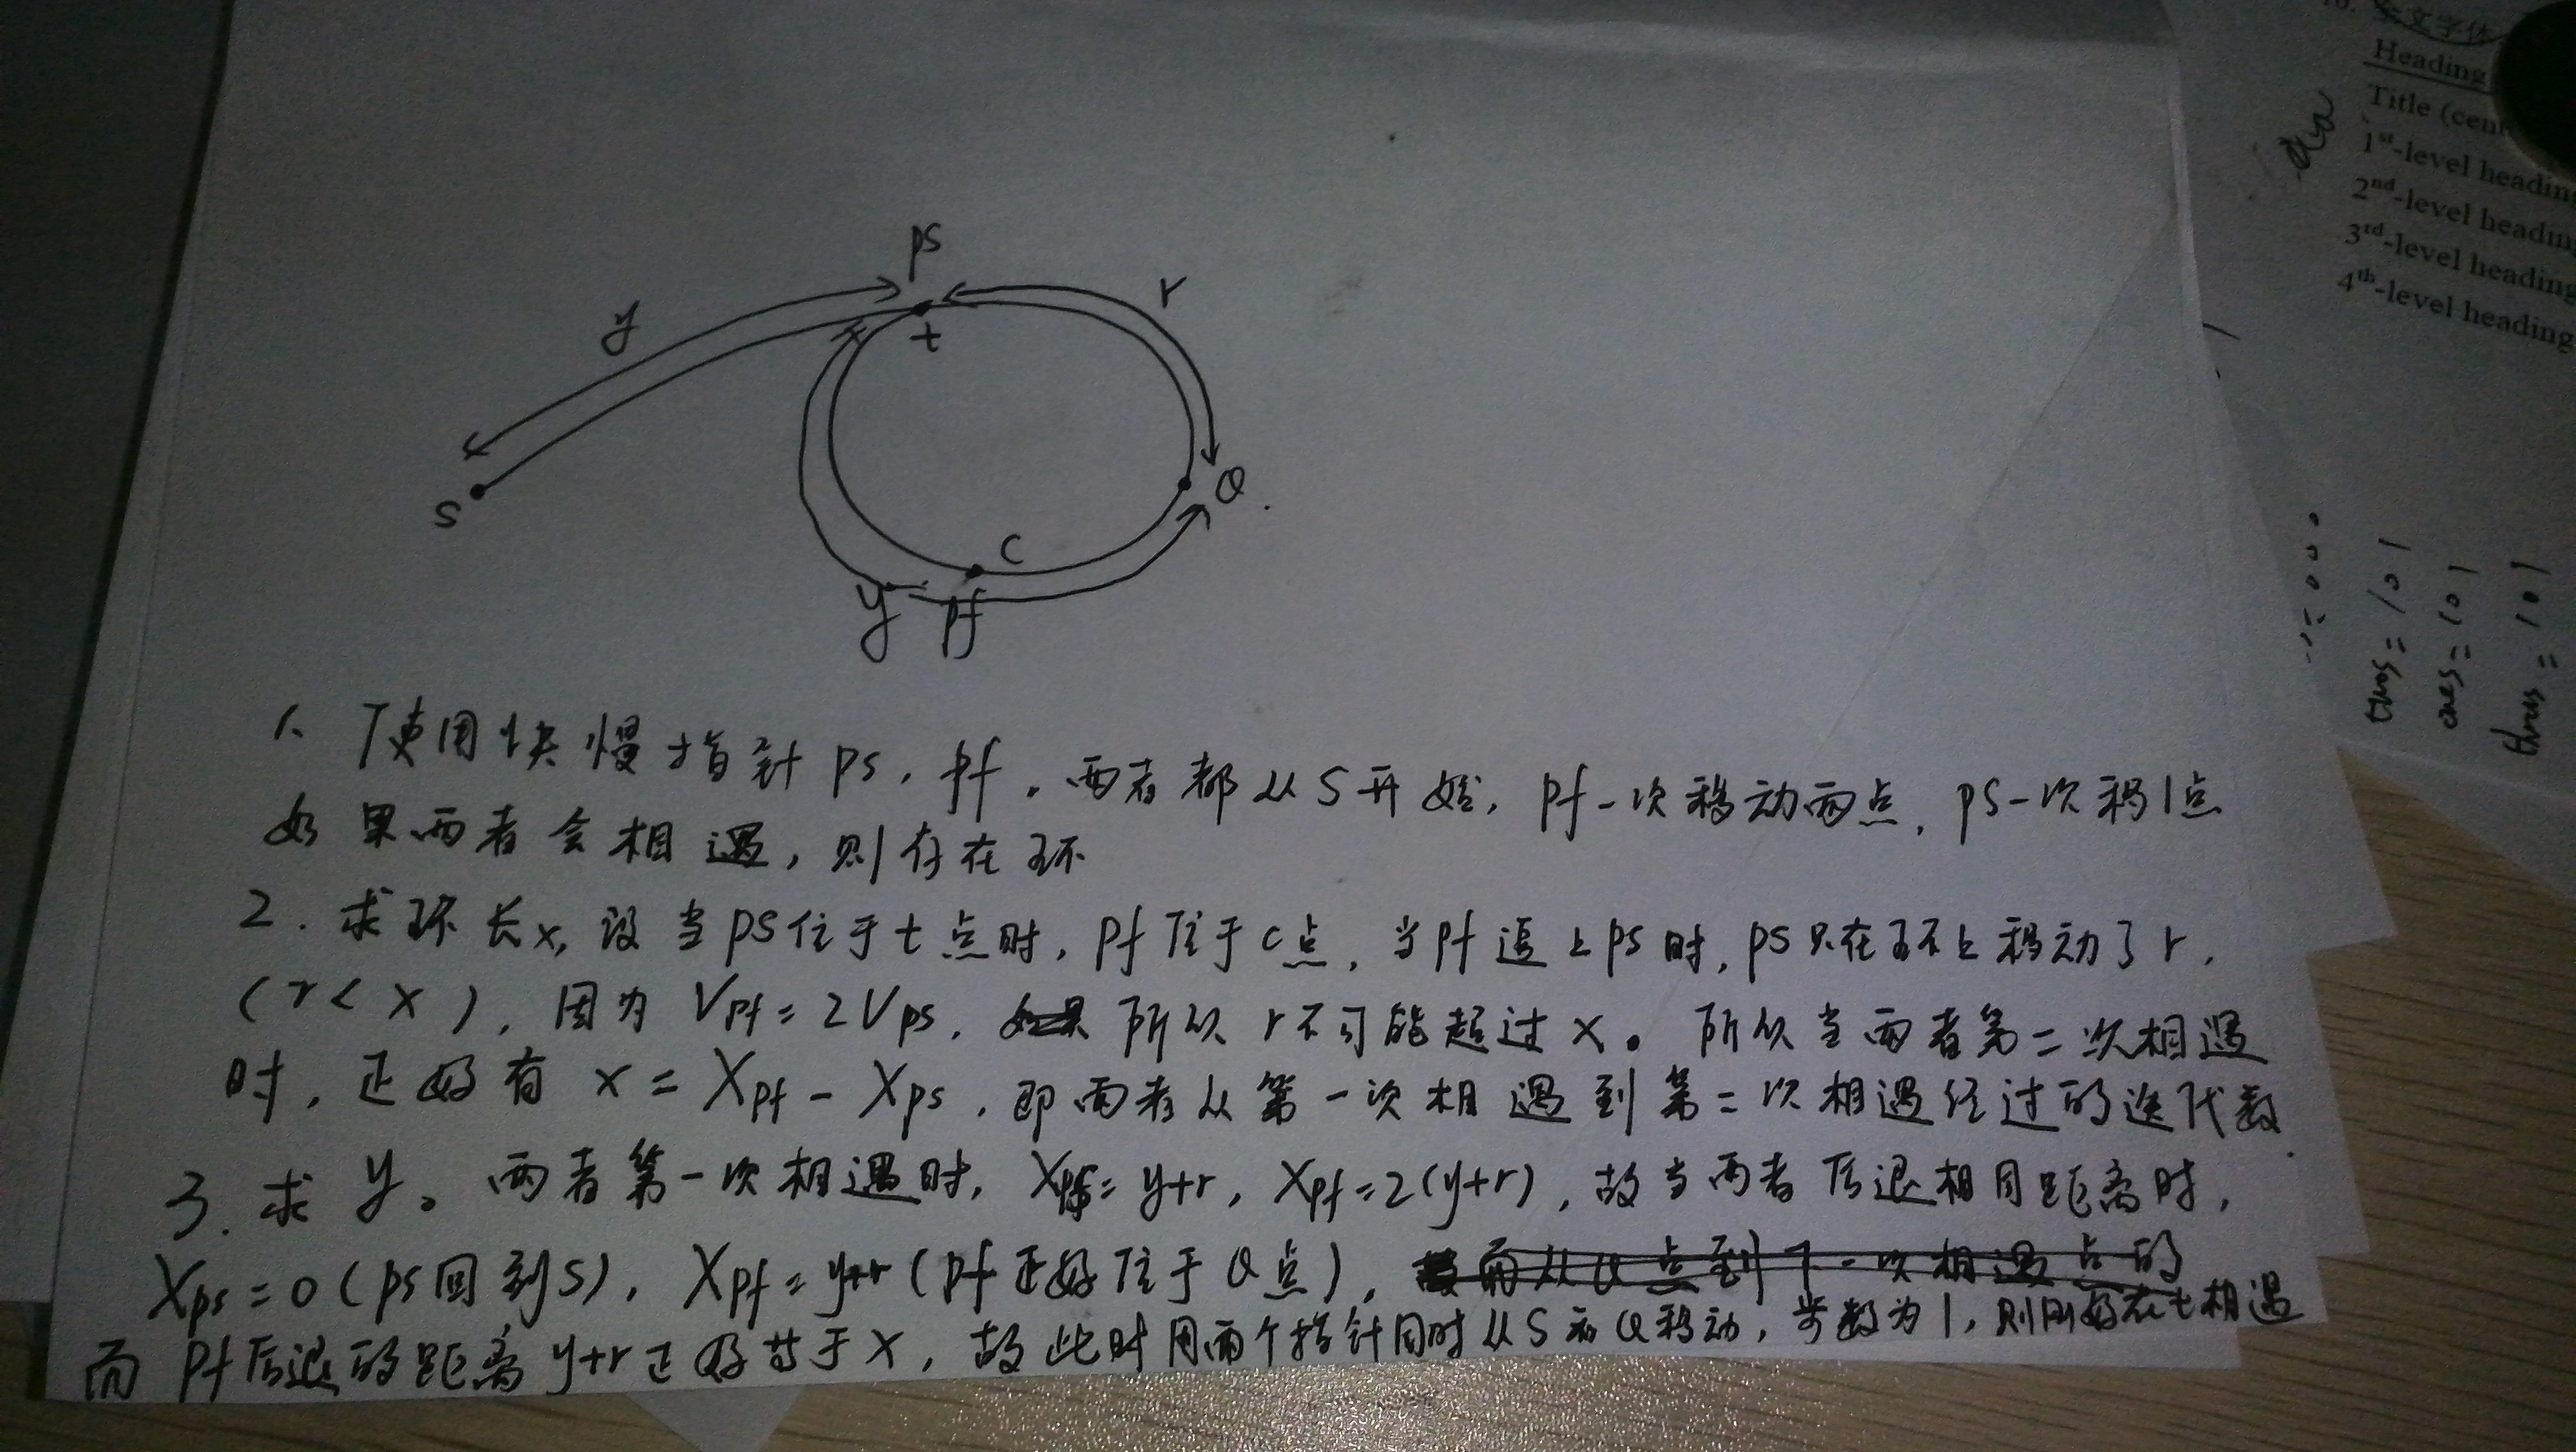 ps
y
r
t
S
Q
C
y
pf
1. 使用快慢指针 ps, pf, 两者都从S开始, pf一次移动两点, ps一次移1点
如果两者会相遇, 则存在环
2. 求环长x, 设当ps位于t点时, pf位于c点, 当pf追上ps时, ps只在环上移动了r,
(r < x), 因为 Vpf = 2Vps, 所以 r不可能超过x。所以当两者第二次相遇
时, 正好有 x = Xpf - Xps, 即两者从第一次相遇到第二次相遇经过的迭代数.
3. 求 y。两者第一次相遇时, Xps = y+r, Xpf = 2(y+r), 故当两者后退相同距离时,
Xps = 0 (ps回到S), Xpf = y+r (pf正好位于Q点),
而 pf后退的距离 y+r 正好等于 x, 故此时用两个指针同时从S和Q移动, 步数为1, 则刚好在t相遇
文字体
Heading
Title (cent
1st-level heading
2nd-level heading
3rd-level heading
4th-level heading
twos = 101
ones = 101
thrus = 101